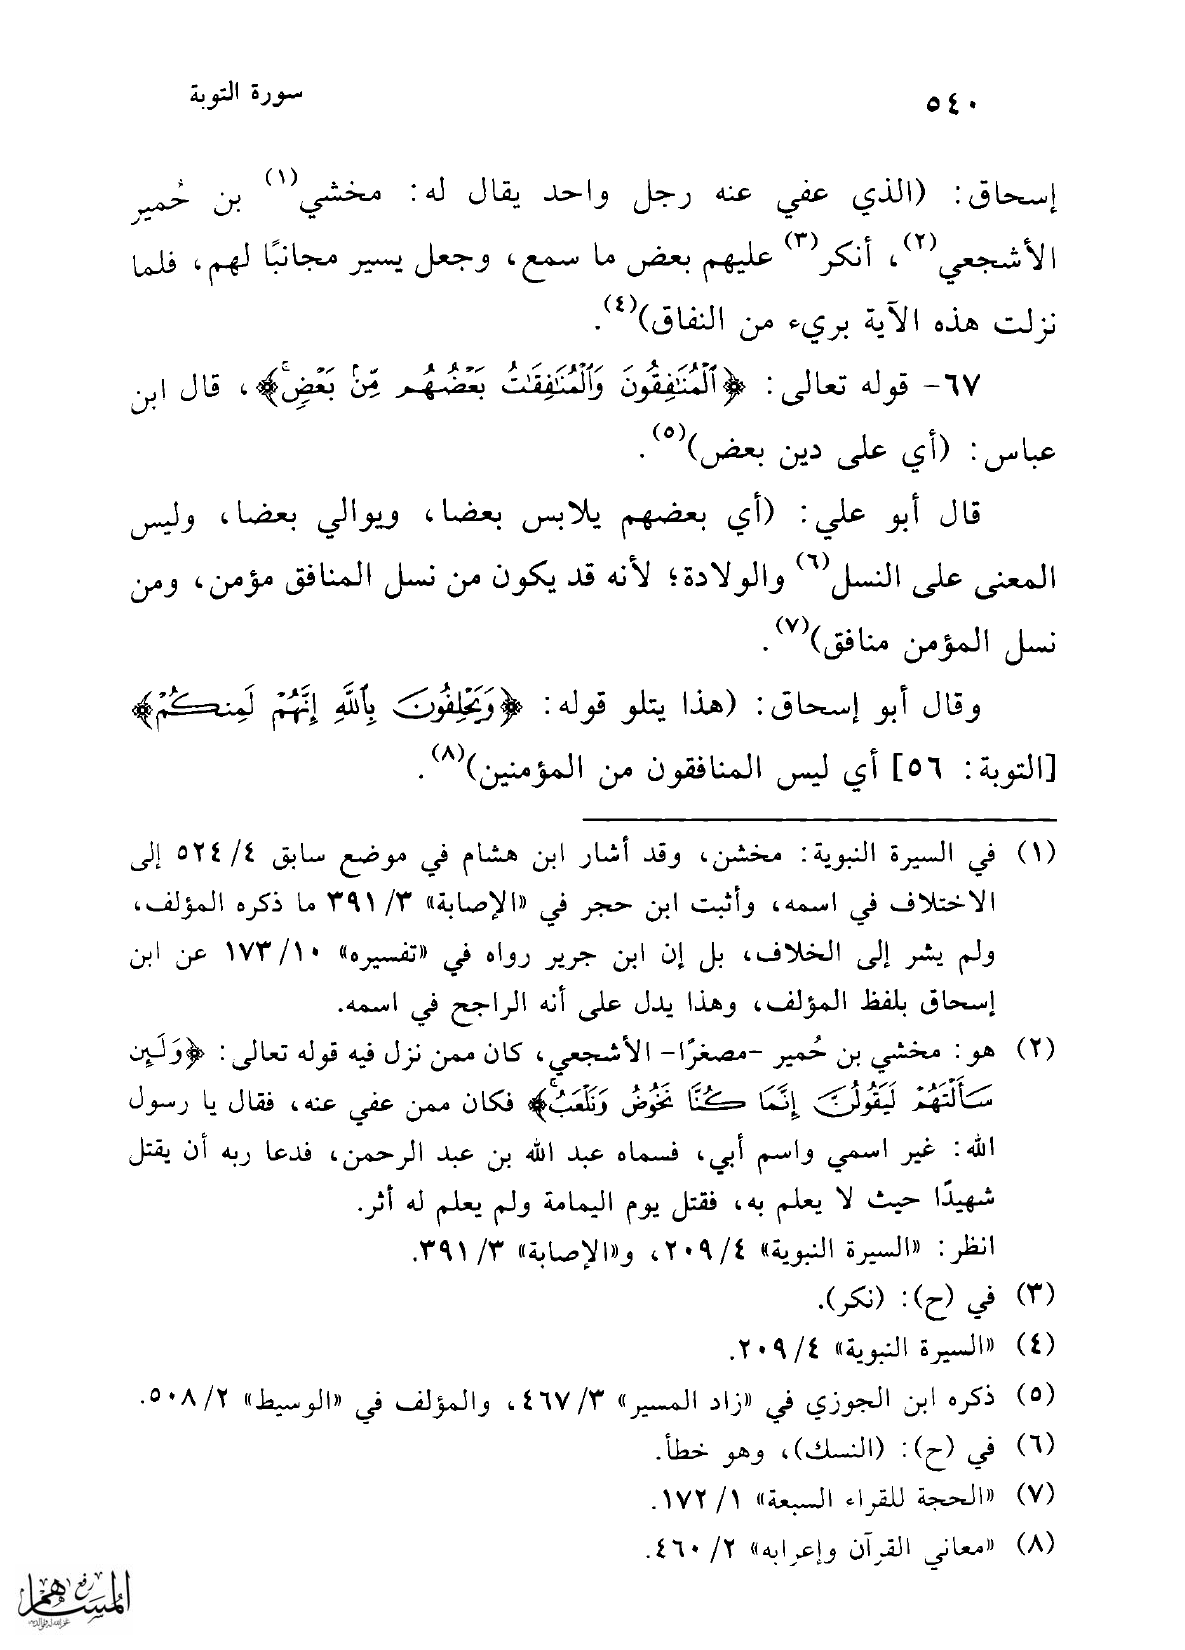 ٥٤٠
سورة التوبة
إسحاق: (الذي عفي عنه رجل واحد يقال له: مخشي(١) بن حُمير
الأشجعي(٢)، أنكر(٣) عليهم بعض ما سمع، وجعل يسير مجانبًا لهم، فلما
نزلت هذه الآية بريء من النفاق)(٤).
٦٧- قوله تعالى: ﴿ٱلْمُنَٰفِقُونَ وَٱلْمُنَٰفِقَٰتُ بَعْضُهُم مِّنۢ بَعْضٍۚ﴾، قال ابن
عباس: (أي على دين بعض)(٥).
قال أبو علي: (أي بعضهم يلابس بعضا، ويوالي بعضا، وليس
المعنى على النسل(٦) والولادة؛ لأنه قد يكون من نسل المنافق مؤمن، ومن
نسل المؤمن منافق)(٧).
وقال أبو إسحاق: (هذا يتلو قوله: ﴿وَيَحْلِفُونَ بِٱللَّهِ إِنَّهُمْ لَمِنكُمْ﴾
[التوبة: ٥٦] أي ليس المنافقون من المؤمنين)(٨).
(١) في السيرة النبوية: مخشن، وقد أشار ابن هشام في موضع سابق ٤/ ٥٢٤ إلى
الاختلاف في اسمه، وأثبت ابن حجر في «الإصابة» ٣/ ٣٩١ ما ذكره المؤلف،
ولم يشر إلى الخلاف، بل إن ابن جرير رواه في «تفسيره» ١٠/ ١٧٣ عن ابن
إسحاق بلفظ المؤلف، وهذا يدل على أنه الراجح في اسمه.
(٢) هو: مخشي بن حُمير -مصغرًا- الأشجعي، كان ممن نزل فيه قوله تعالى: ﴿وَلَئِن
سَأَلْتَهُمْ لَيَقُولُنَّ إِنَّمَا كُنَّا نَخُوضُ وَنَلْعَبُۚ﴾ فكان ممن عفي عنه، فقال يا رسول
الله: غير اسمي واسم أبي، فسماه عبد الله بن عبد الرحمن، فدعا ربه أن يقتل
شهيدًا حيث لا يعلم به، فقتل يوم اليمامة ولم يعلم له أثر.
انظر: «السيرة النبوية» ٤/ ٢٠٩، و«الإصابة» ٣/ ٣٩١.
(٣) في (ح): (نكر).
(٤) «السيرة النبوية» ٤/ ٢٠٩.
(٥) ذكره ابن الجوزي في «زاد المسير» ٣/ ٤٦٧، والمؤلف في «الوسيط» ٢/ ٥٠٨.
(٦) في (ح): (النسك)، وهو خطأ.
(٧) «الحجة للقراء السبعة» ١/ ١٧٢.
(٨) «معاني القرآن وإعرابه» ٢/ ٤٦٠.